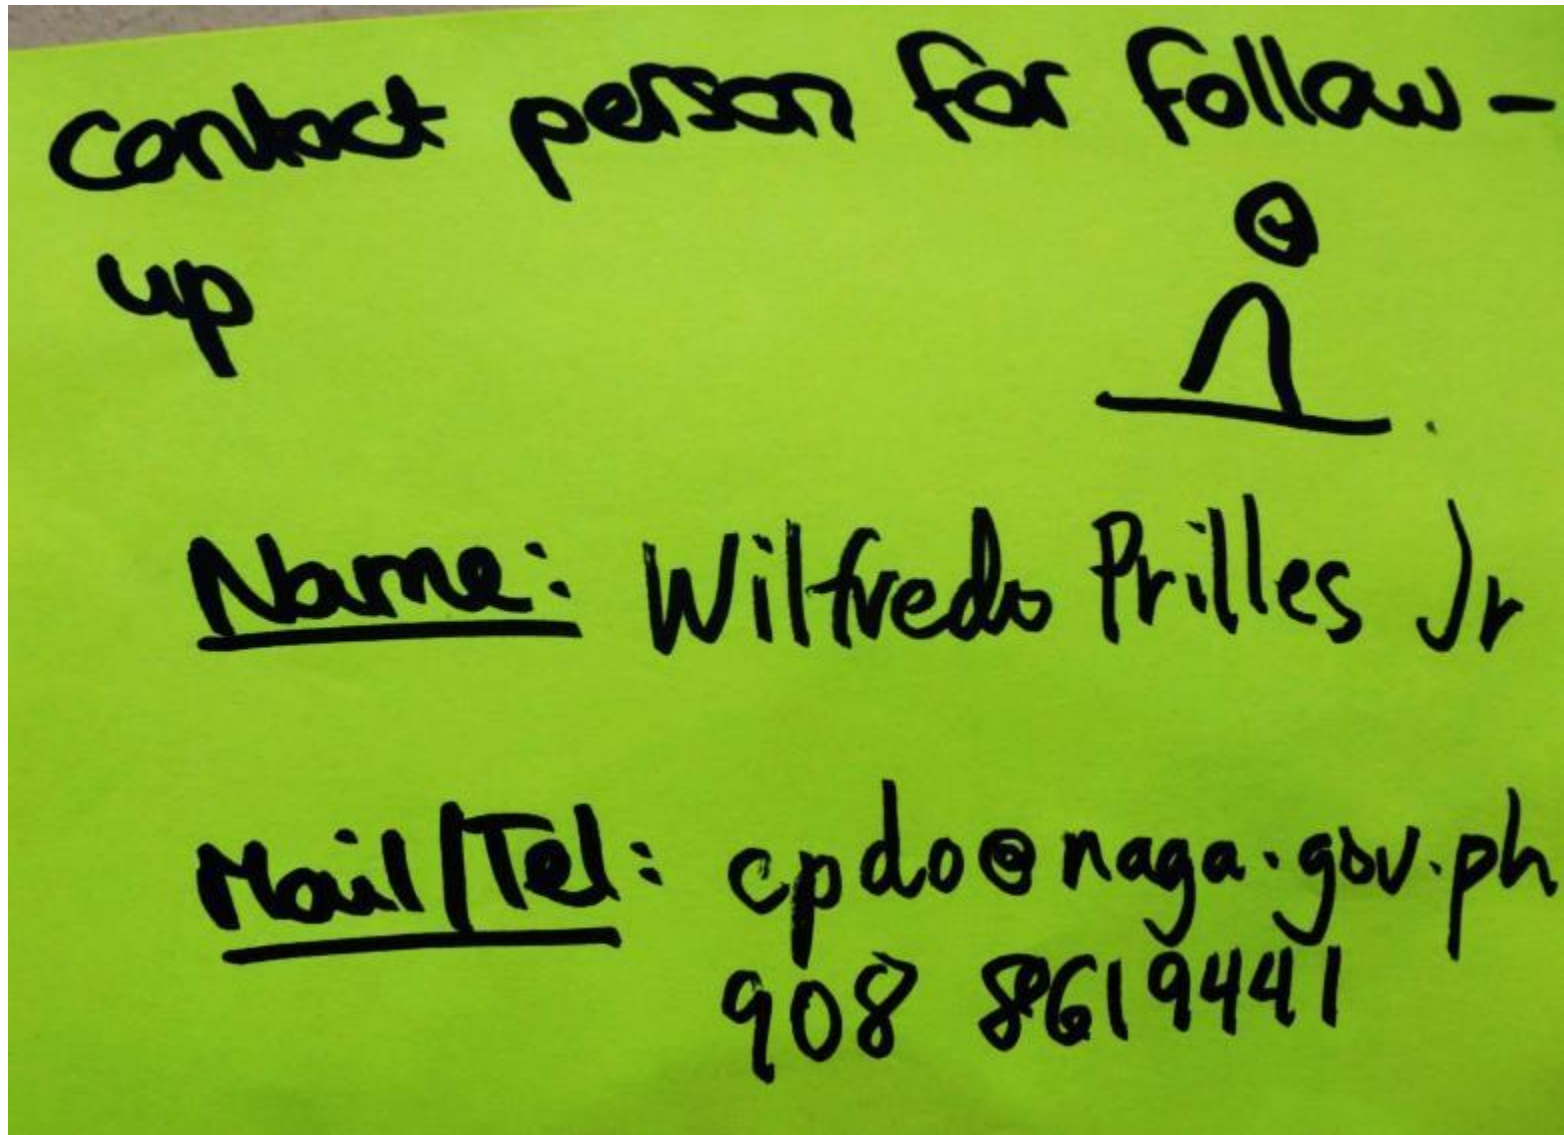 contact person for follow-
up
Name: Wilfredo Prilles Jr
Mail/Tel: cpdo@naga.gov.ph
908 8619441